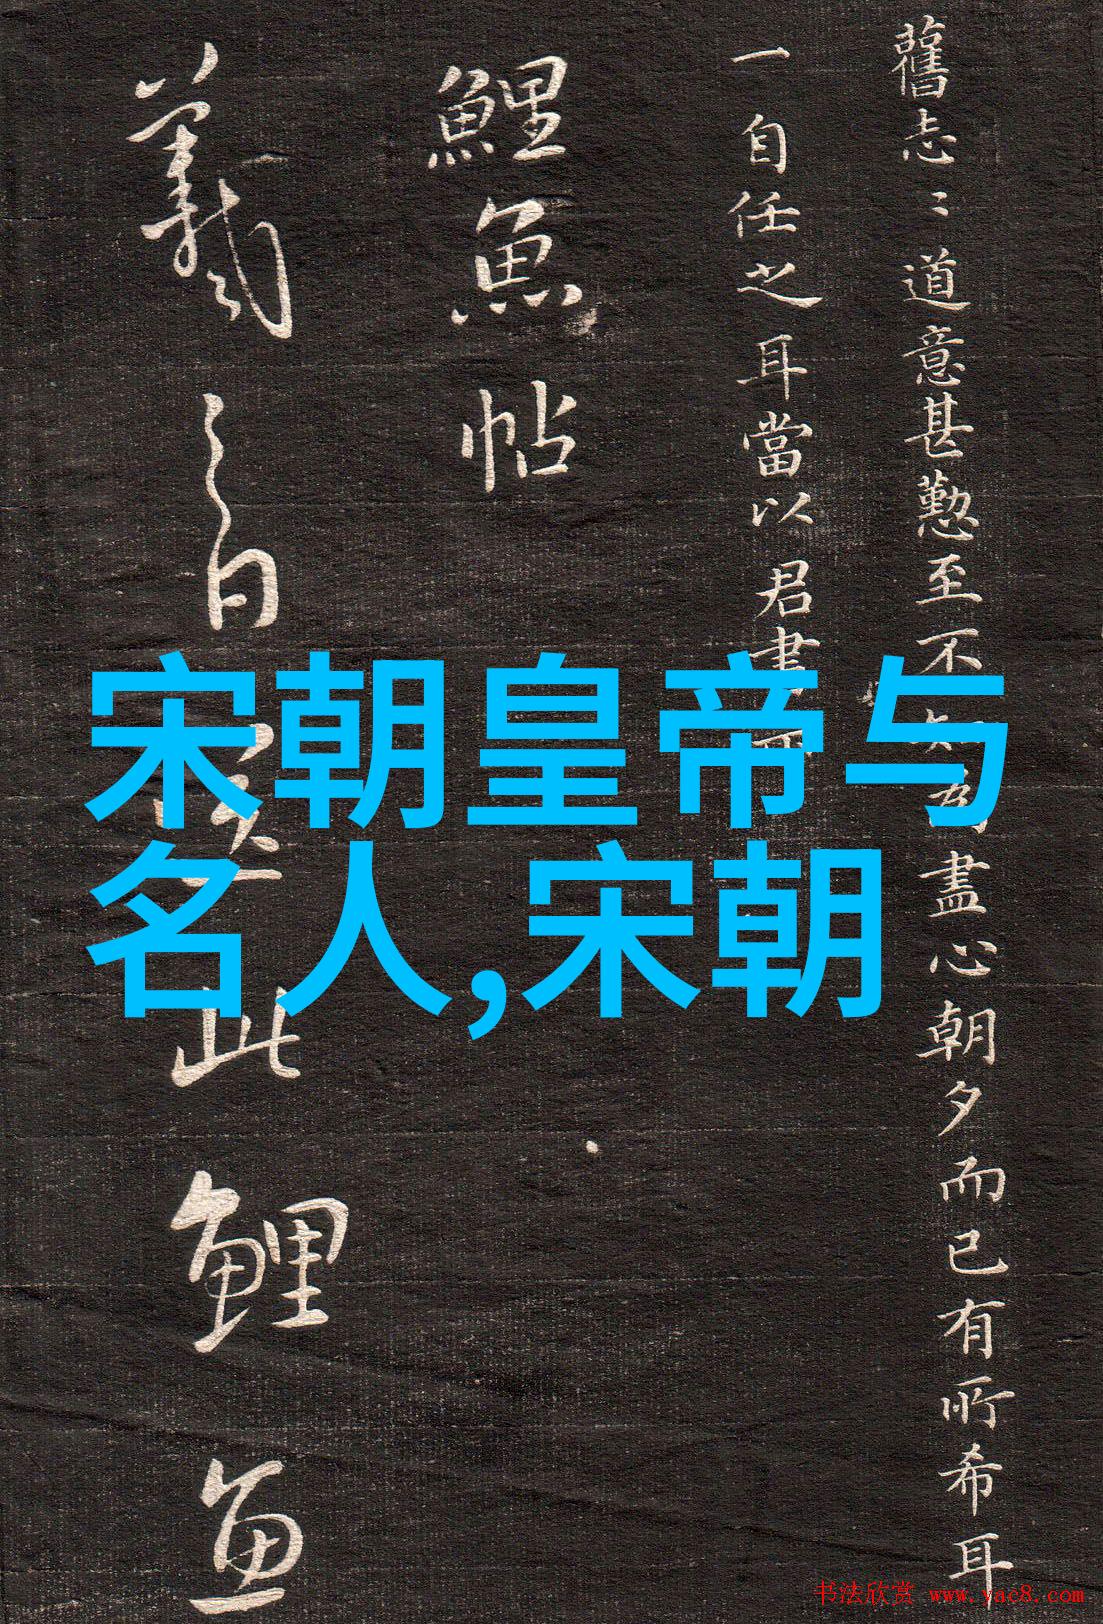 宋朝皇帝与
名人,宋朝
舊志〻道意甚懃至不盡心朝夕而已有所希耳
一自任之耳當以君書
鯉魚帖
羲之白此鯉魚
书法欣赏 www.yac8.com